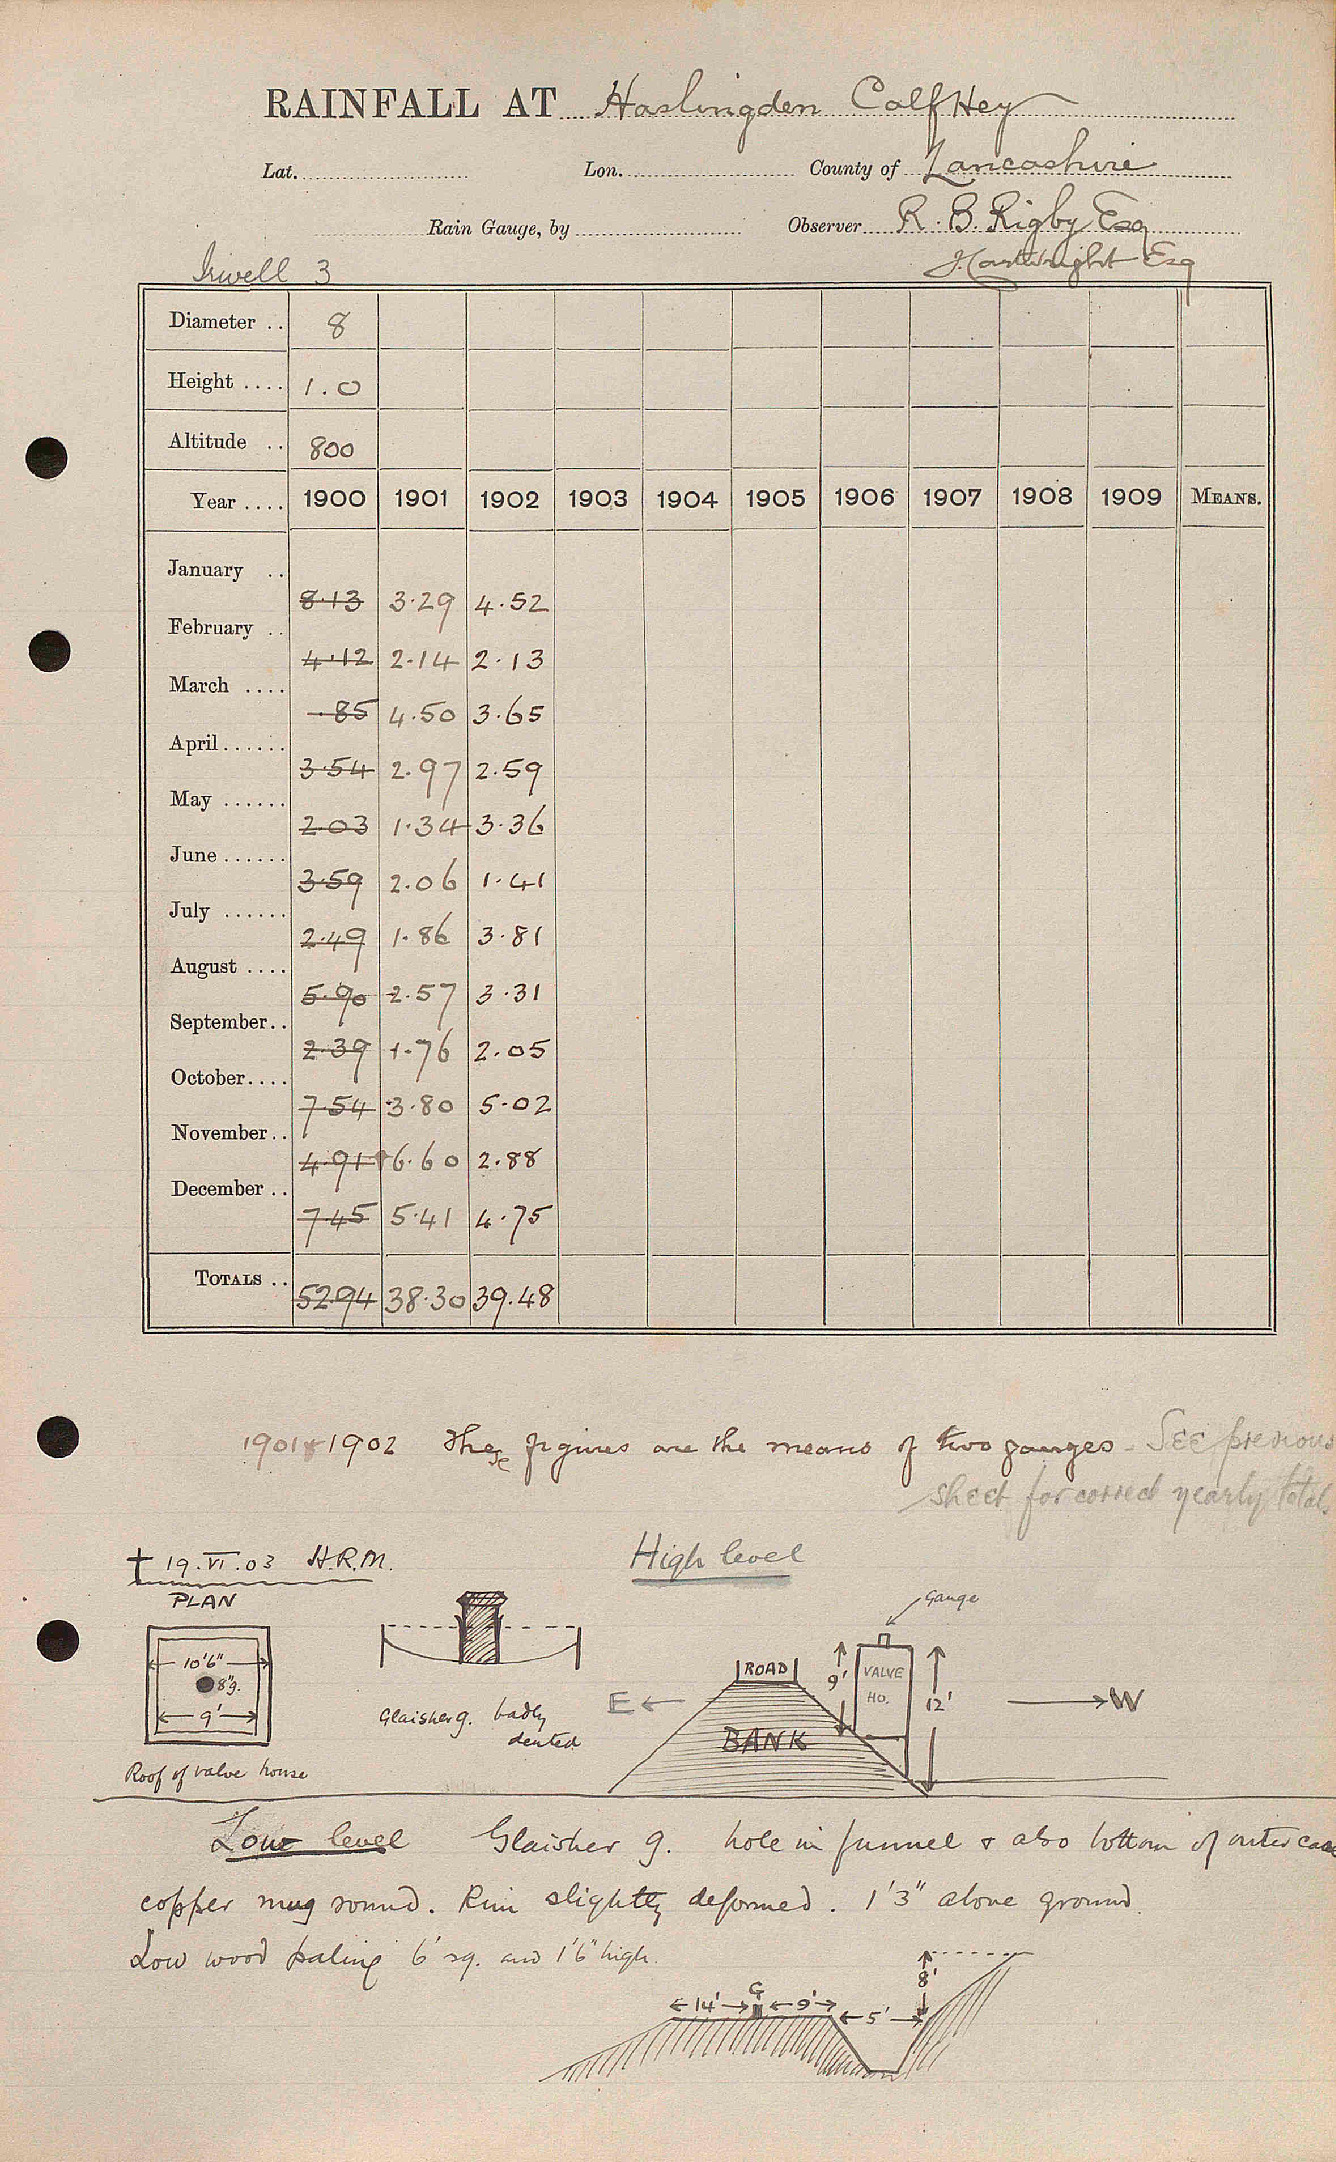 RAINFALL AT Haslingden Calf Hey
Lat. Lon. County of Lancashire
Rain Gauge, by Observer R. B. Rigby Esq
Irwell 3 J. Cartwright Esq
Diameter .. 8
Height .... 1.0
Altitude .. 800
Year .... 1900 1901 1902 1903 1904 1905 1906 1907 1908 1909 MEANS.
January .. 8.13 3.29 4.52
February .. 4.12 2.14 2.13
March .... .85 4.50 3.65
April ...... 3.54 2.97 2.59
May ...... 2.03 1.34 3.36
June ...... 3.59 2.06 1.41
July ...... 2.49 1.86 3.81
August .... 5.90 2.57 3.31
September.. 2.39 1.76 2.05
October.... 7.54 3.80 5.02
November.. 4.91 6.60 2.88
December .. 7.45 5.41 4.75
TOTALS .. 52.94 38.30 39.48
1901 & 1902 These figures are the means of two gauges. See previous
sheet for correct yearly totals
† 19.VI.03 H.R.M. High level
PLAN
Gauge
10'6"
8"g.
9'
ROAD
9'
VALVE
HO.
12'
E W
BANK
Glaisher g. badly
dented
Roof of valve house
Low level Glaisher g. hole in funnel & also bottom of outer case
copper mug round. Rim slightly deformed. 1'3" above ground.
Low wood paling 6' sq. and 1'6" high.
8'
14' G 9' 5'